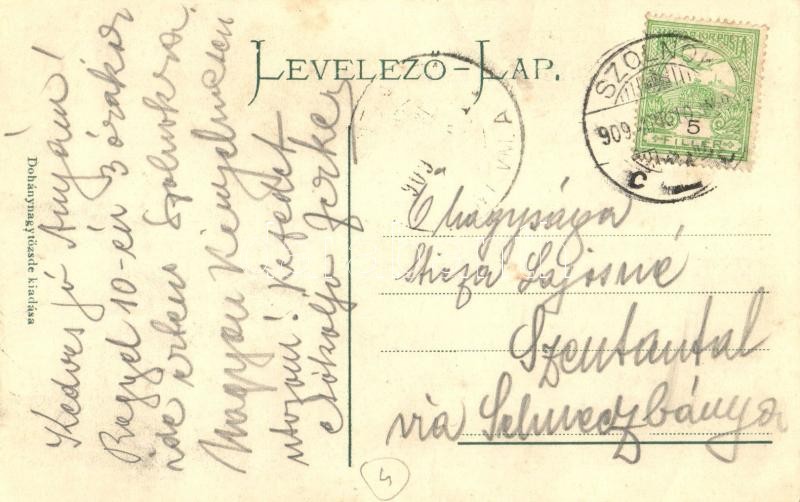 LEVELEZŐ-LAP.
Kedves jó Anyám!
Reggel 10-én 3 órakor
ide értem Szolnokra.
Nagyon kényelmesen
utazom! Kezedet
csókolja Ferke
Dohánynagytőzsde kiadása
SZOLNOK
909
C
MAGYAR KIR. POSTA
5
FILLÉR
Őnagysága
Lajosné
Szentantal
via Selmeczbánya
4